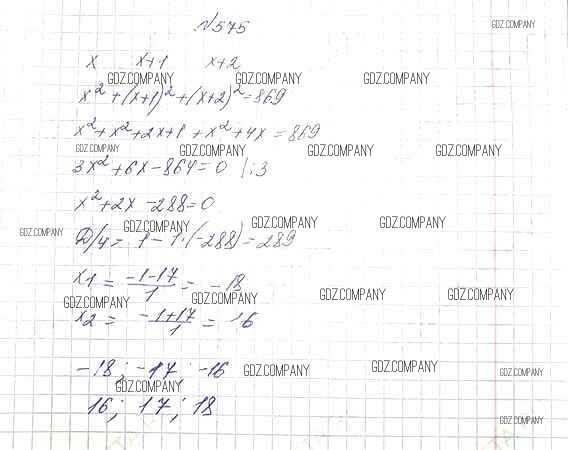 №575
GDZ.COMPANY
x   x+1   x+2
GDZ.COMPANY GDZ.COMPANY GDZ.COMPANY
x² + (x+1)² + (x+2)² = 869
x² + x² + 2x + 1 + x² + 4x = 869
GDZ.COMPANY GDZ.COMPANY GDZ.COMPANY GDZ.COMPANY
3x² + 6x - 864 = 0 |:3
x² + 2x - 288 = 0
GDZ.COMPANY GDZ.COMPANY GDZ.COMPANY GDZ.COMPANY
D/4 = 1 - 1·(-288) = 289
x1 = (-1-17)/1 = -18
GDZ.COMPANY GDZ.COMPANY GDZ.COMPANY GDZ.COMPANY
x2 = (-1+17)/1 = 16
-18; -17; -16
GDZ.COMPANY GDZ.COMPANY GDZ.COMPANY
GDZ.COMPANY
16; 17; 18
GDZ.COMPANY